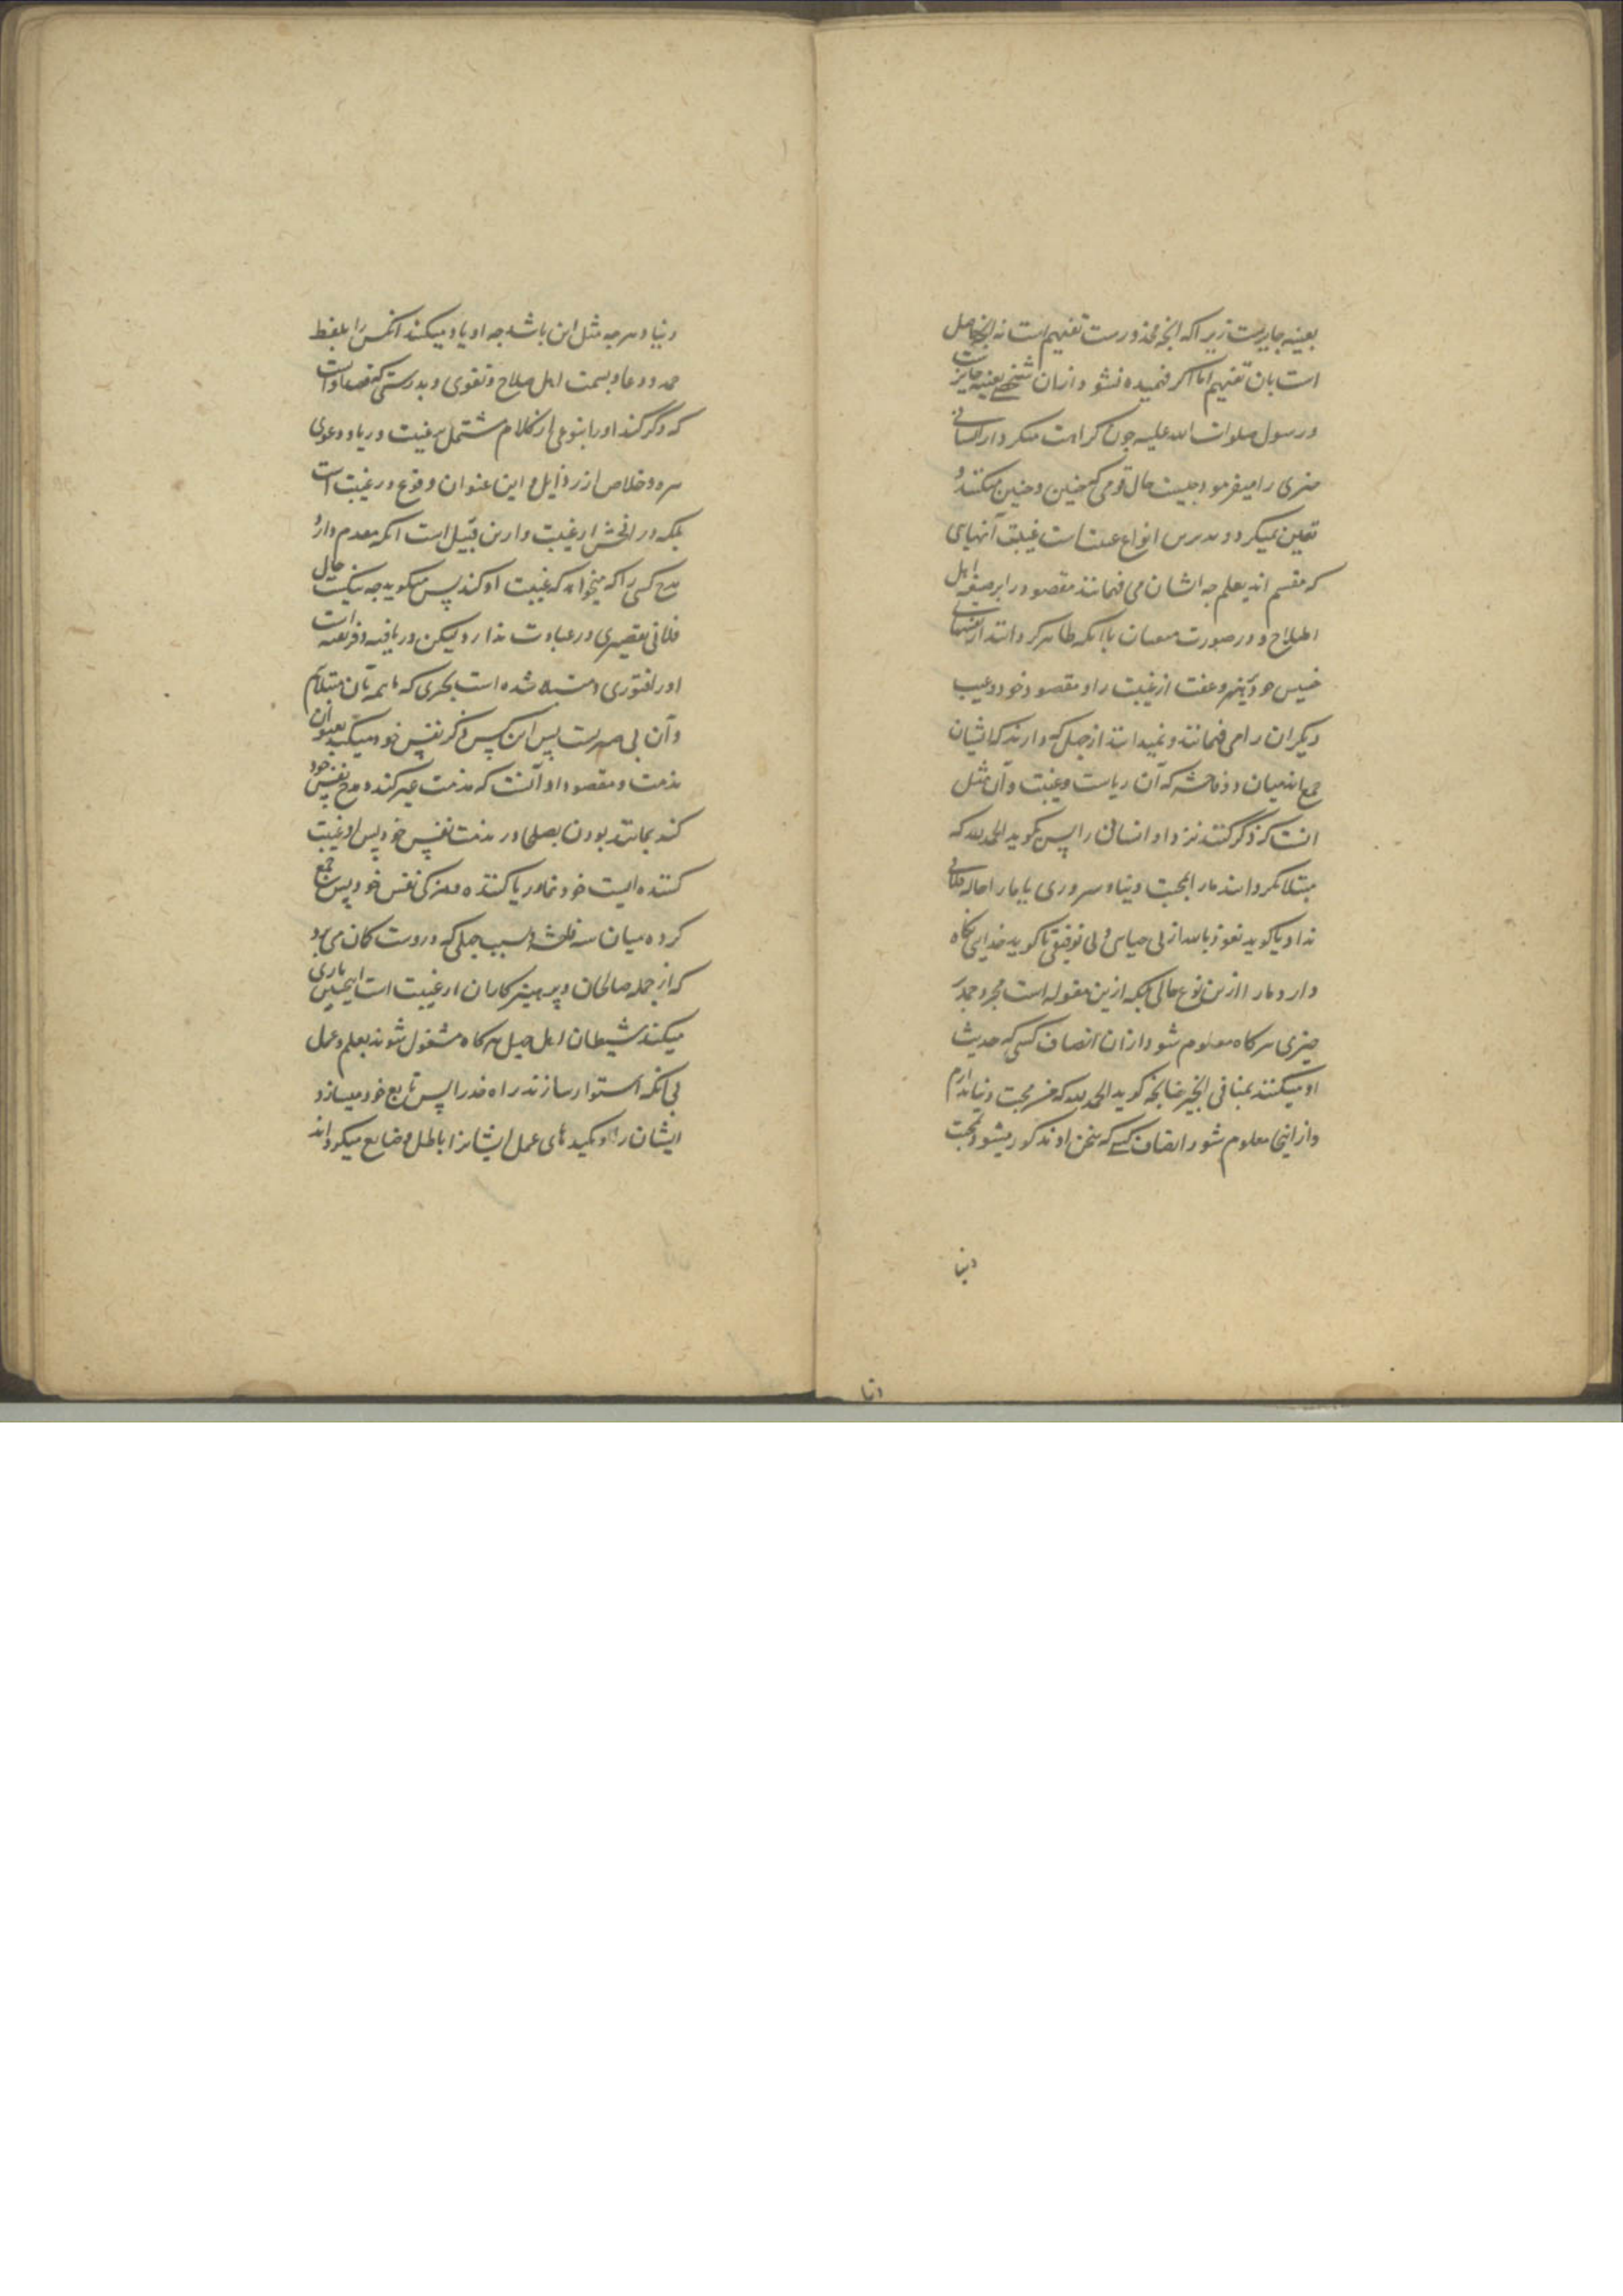 بعینه جایزست زیرا که آنچه محذورست تفهیم است نه آنچه حاصل
است بان تفهیم اما اکر فهمیده نشود ازان شخصی بعینه جایزست
ورسول صلوات الله علیه چون کراهت میکرد از انسانی
چیزی را میفرمود چیست حال قومی که چنین وچنین میکنند و
تعیین نمیکرد و بدترین انواع غیبت است غیبت آنهای
که متسم اند بعلم چه ایشان می فهمانند مقصود را بر صیغه اهل
اصلاح و در صورت بانکه ظاهر کردانند از نفسهای
خسیس خود تعفف از غیبت را و مقصود خود و عیب
دیکران را می فهمانند و نمیدانند از جهلی که دارند که ایشان
جمع اند میان دو فاحشه که آن ریاست و غیبت و آن مثل
انست که ذکر کنند نزد او انسانی را پس کوید الحمد لله که
مبتلا نکردانند مارا بمحبت دنیا و سروری یا مارا حاله فلانی
نداد یا کوید نعوذ بالله از بی حیاسی و بی توفیقی یا کوید خدایی نکاه
دارد مارا ازین نوع حالی بلکه ازین مقوله است مجرد حمد بر
چیزی هرکاه معلوم شود ازان اتصاف کسی که حدیث
او میکنند بمنافی الخیر چنانچه کوید الحمد لله که من محبت دنیا ندارم
واز اینجا معلوم شود اتصاف کسی که سخن او مذکور میشود بمحبت
دنیا
دنیا
دنیا و هرچه مثل این باشد چه او یاد میکند انکس را بلفظ
حمد و دعا و بسمت اهل صلاح و تقوی و بدرستی که قصد او انست
که ذکر کند او را بنوعی از کلام مشتمل بر غیبت و ریا و دعوی
هر دو خلاص از رذایل و این عنوان وقوع در غیبت است
بلکه در افحش از غیبت و ازین قبیل است انکه مقدم دارد
مدح کسی را که میخواهد که غیبت او کند پس میکوید چه نیکست حال
فلانی تقصیری در عبادت ندارد لیکن دریافته و فریفته است
اورا فتوری و مبتلا شده است بچیزی که ما همه بآن مبتلایم
وآن بی صبریست پس این کس ذکر نفس خود میکند بعنوان
مذمت و مقصود او آنست که مذمت غیر کند و مدح نفس خود
کند بمانند بودن بصلحا در مذمت نفس خود پس او غیبت
کننده ایست خود نما و ریا کننده و مزکی نفس خود پس جمع
کرده میان سه فاحشه و بسبب جهلی که دروست کان می برد
که از جمله صالحان و پرهیزکاران از غیبت است اینچنین بازی
میکند شیطان اهل جهل هرکاه مشغول شوند بعلم و عمل
بی آنکه استوار سازند راه خدرا پس تابع خود میسازد
ایشان را و بکیدهای عمل ایشانرا باطل و ضایع میکرداند